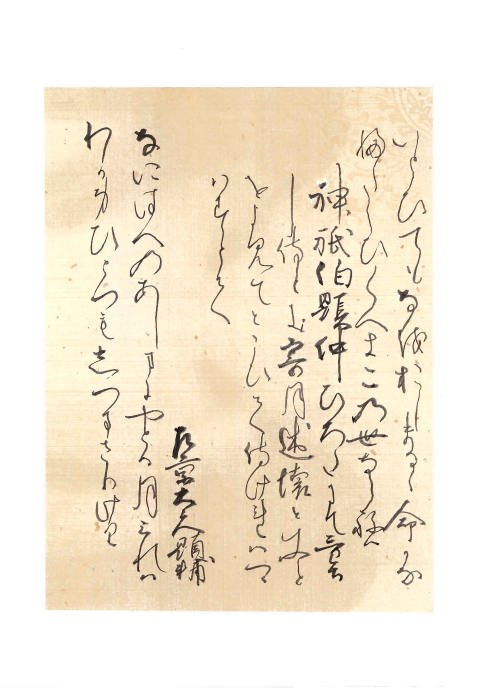 いとひてもなほをしまるゝ命かな
ふたゝひくへきこの世ならねは
神祇伯顕仲ひろたにて哥合
し侍とて寄月述懐といふこと
をよみてとこひて侍けれはつか
はすとて
左京大夫顕輔
なにはへのあしまにやとる月みれは
わか身ひとつもしつまさりけり